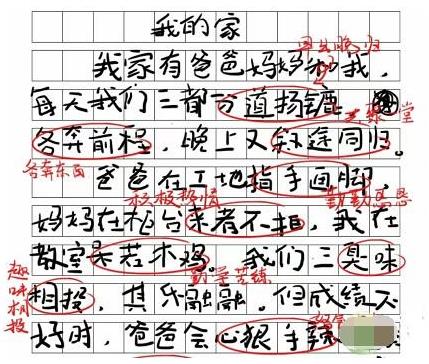 我的家
早出晚归
我家有爸爸妈妈和我,
每天我们三都分道扬镳,
堂
各奔前程,晚上又殊途同归。
各奔东西
爸爸在工地指手画脚,
积极热情
勤勤恳恳
妈妈在柜台来者不拒,我在
教室呆若木鸡。我们三臭味
趣味相投
勤学苦练
相投,其乐融融。但成绩不
好时,爸爸会心狠手辣